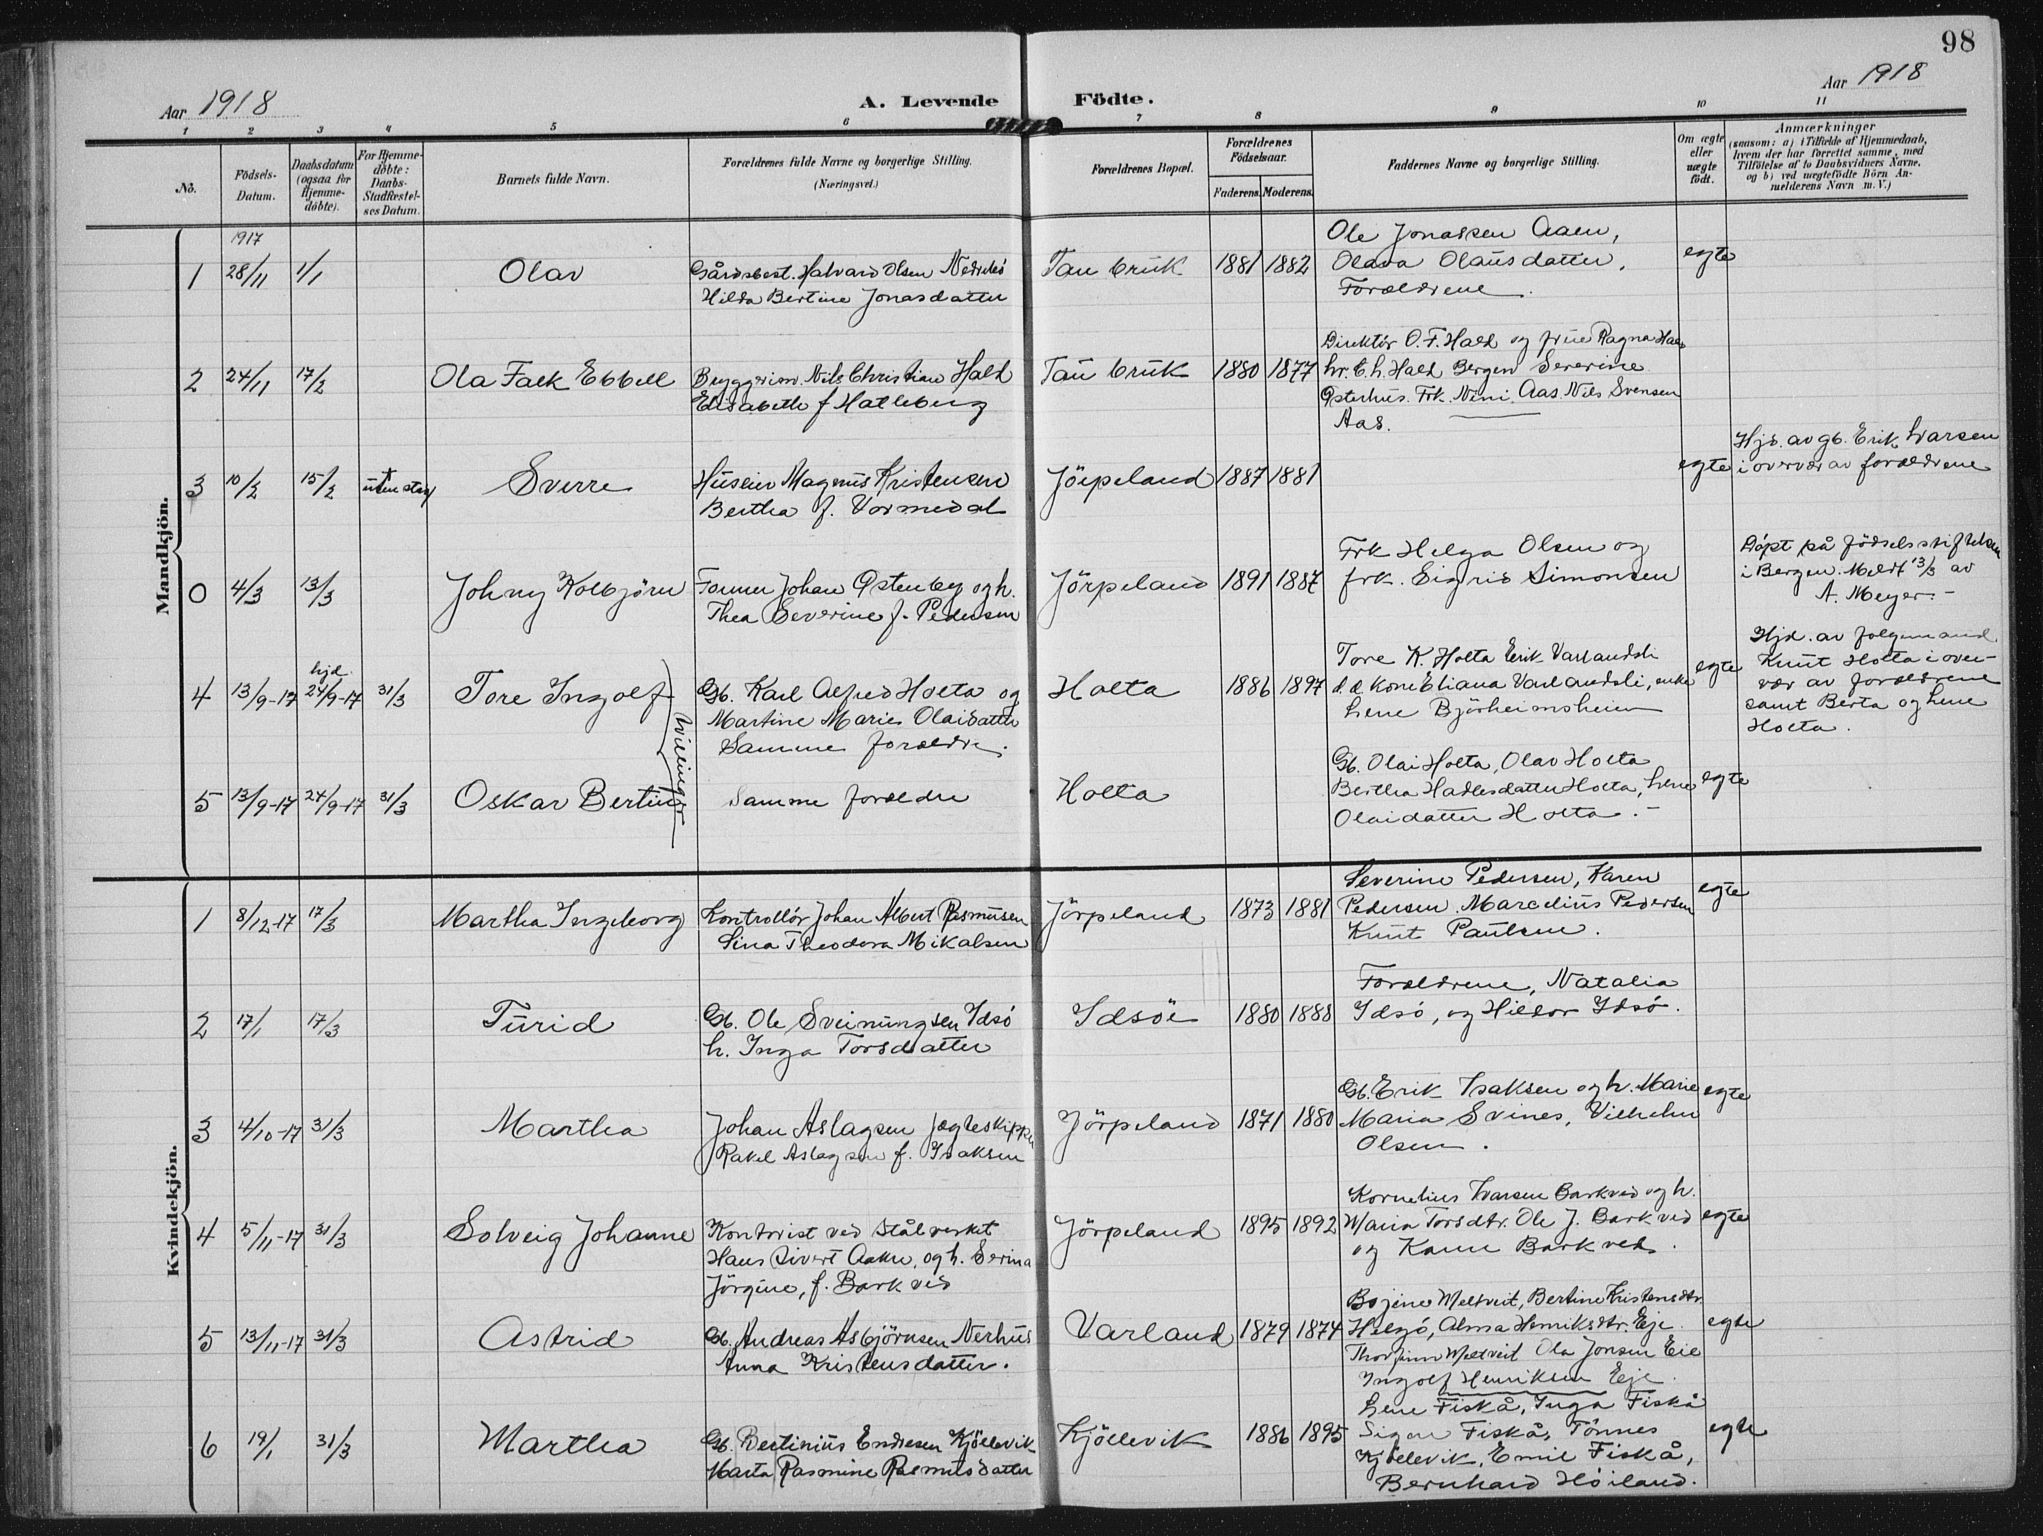 98
Aar 1918
A. Levende Födte.
Aar 1918
1 2 3 4 5 6 7 8 9 10 11
No.
Födsels-Datum.
Daabsdatum (ogsaa for Hjemme-döbte).
For Hjemme-döbte: Daabs-Stadfæstel-ses Datum.
Barnets fulde Navn.
Forældrenes fulde Navne og borgerlige Stilling.
(Næringsvei.)
Forældrenes Bopæl.
Forældrenes Födselsaar.
Faderens. Moderens.
Faddernes Navne og borgerlige Stilling.
Om ægte eller uægte födt.
Anmærkninger
(saasom: a) i Tilfælde af Hjemmedaab,
hvem der har forrettet samme, med
Tilföielse af to Daabsvidners Navne,
og b) ved uægtefödte Börn An-
melderens Navn m. V.)
Mandkjön.
1917
1 28/11 1/1 Olav
Gårdsbest. Halvard Olsen Nedrebö
Hilda Bertine Jonasdatter
Tau bruk 1881 1882
Ole Jonassen Aaen,
Olava Olausdatter,
Forældrene.
egte
2 24/11 17/2 Ola Falk Ebbell
Bryggerim. Nils Christian Hald
Elisabeth f Hatleberg
Tau bruk 1880 1877
Direktör O. F. Hald og frue Ragna Hald
hr. C. h. Hald Bergen Severine
Österhus. Frk. Nini Aas. Nils Svensen
Aas.
3 10/2 15/2 Sverre
Huseier Magnus Kristensen
Bertha f. Vormedal
Jörpeland 1887 1881
egte
Hjd. av gb. Erik Ivarsen
i overvær av forældrene
0 4/3 13/3 Johny Kolbjörn
Former Johan Östenby og h.
Thea Severine f. Pedersen
Jörpeland 1891 1887
Frk Helga Olsen og
frk. Sigrid Simonsen
Döpt på födselsstiftelsen
i Bergen. Meldt 13/3 av
A. Meyer. –
4 13/9-17 hjd. 24/9-17 31/3 Tore Ingolf
Gb. Karl Alfred Holta og
Martine Marie Olaidatter
Samme forældre.
Holta 1886 1897
Tore K. Holta Erik Varlandsli
d.æ. kone Eliana Varlandsli, enke
Lene Bjørheimsheien
egte
Hjd. av folgemand
Knut Holta i over-
vær av forældrene
samt Berta og Lene
Holta.
Tvillinger
5 13/9-17 24/9-17 31/3 Oskar Bertin
Samme forældre
Holta
Gb. Olai Holta, Olav Holta
Bertha Hadlesdatter Holta, Lene
Olaidatter Holta. –
egte
Kvindekjön.
1 8/12-17 17/3 Martha Ingeborg
Kontrollör Johan Albert Rasmussen
Sina Theodora Mikalsen
Jörpeland 1873 1881
Severine Pedersen, Karen
Pedersen, Marcelius Pedersen
Knut Paulsen.
egte
2 17/1 17/3 Turid
Gb. Ole Sveinungsen Idsö
h. Inga Torsdatter
Idsöe 1880 1888
Forældrene, Natalia
Idsö, og Hildor Idsö.
3 4/10-17 31/3 Martha
Johan Aslagsen jægteskipper
Rakel Aslagsen f. Isaksen
Jörpeland 1871 1880
Gb. Erik Isaksen og h. Marie
Maria Svines, Vilhelm
Olsen.
egte
4 5/11-17 31/3 Solveig Johanne
Kontorist ved Stålverket
Hans Sivert Aaker, og h. Serina
Jörgine, f. Barkved
Jörpeland 1895 1892
Kornelius Ivarsen Barkved og h.
Maria Torsdtr. Ole J. Barkved
og Karen Barkved.
egte
5 13/11-17 31/3 Astrid
Gb. Andreas Asbjörnsen Nerhus
Anna Kristensdatter.
Varland 1879 1874
Bojine Meltveit, Bertine Kristensdtr.
Helgö, Alma Henriksdtr. Eje.
Thorfinn Meltveit Ola Jonsen Eie
Ingolf Henriksen Eje.
egte
6 19/1 31/3 Martha
Gb. Bertinius Endresen Kjöllevik
Marta Rasmine Rasmusdatter
Kjöllevik 1886 1895
Lene Fiskå, Inga Fiskå
Signe Fiskå, Tönnes
Kjöllevik, Emil Fiskå,
Bernhard Höiland.
egte